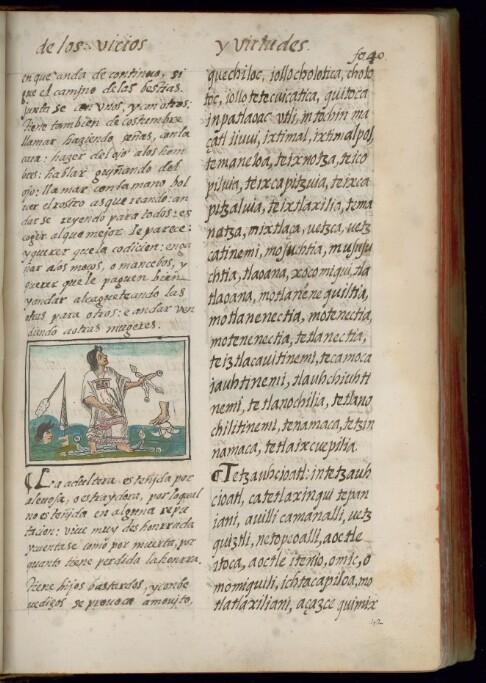 de los vicios y virtudes. fo. 40
en que anda de continuo, si
gue el camino de las bestias.
junta se con vnos, y con otros:
tiene tambien de costumbre
llamar haziendo señas, con la
cara: hazer del ojo a los hom
bres: hablar guyñando del
ojo: llamar con la mano bol
uer el rostro
dar se reyendo para todos: es
coger al que mejor le parece:
y querer que la codicien: enga
ñar a los moços, o mancebos, y
querer que le paguen bien
y andar alcagueteando las
otras para otros: e andar ven
diendo a otras mugeres.
La adultera es teñjda por
aleuosa, o traydora, por lo qual
no es tenjda en alguna repu
tacion: viue muy deshonrrada
y cuenta se como por muerta, por
quanto tiene perdida la honrra.
tiene hijos bastardos, y con be
uedizos se prouoca a mouito,
quechiloc, iollocholotica, cholo
toc, iollotetecuicatica, quitoca
in patlaoac vtli, in tochin ma
çatl iiuui, ixtimal, ixtimalpol,
temaneloa, teixnotza, teico
piluia, teixcapitzuia, teixca
pitzaluia, teixtlaxilia, tema
natza, mixtlaça, vetzca, vetz
catinemi, mosuchtia,
chtia, tlaoana, xocomiqui, tla
tlaoana, motlanenequiltia,
motlanenectia, motenectia,
motenenectia, tetlanectia,
teiztlacauitinemi, tecamoca
iauhtinemi, tlauhchiuhti
nemi, tetlanochilia, tetlano
chilitinemi, tenamaca, tetzin
namaca, tetlaixcuepilia.
Tetzauhcioatl: in tetzauh
cioatl, ca tetlaxinqui tepan
iani, auilli camanalli, vetz
quiztli, netopeoalli, aoctle
itoca, aoctle itenio, omic, o
momiquili, ichtacapiloa, mo
tlatlaxiliani, açazce quimix